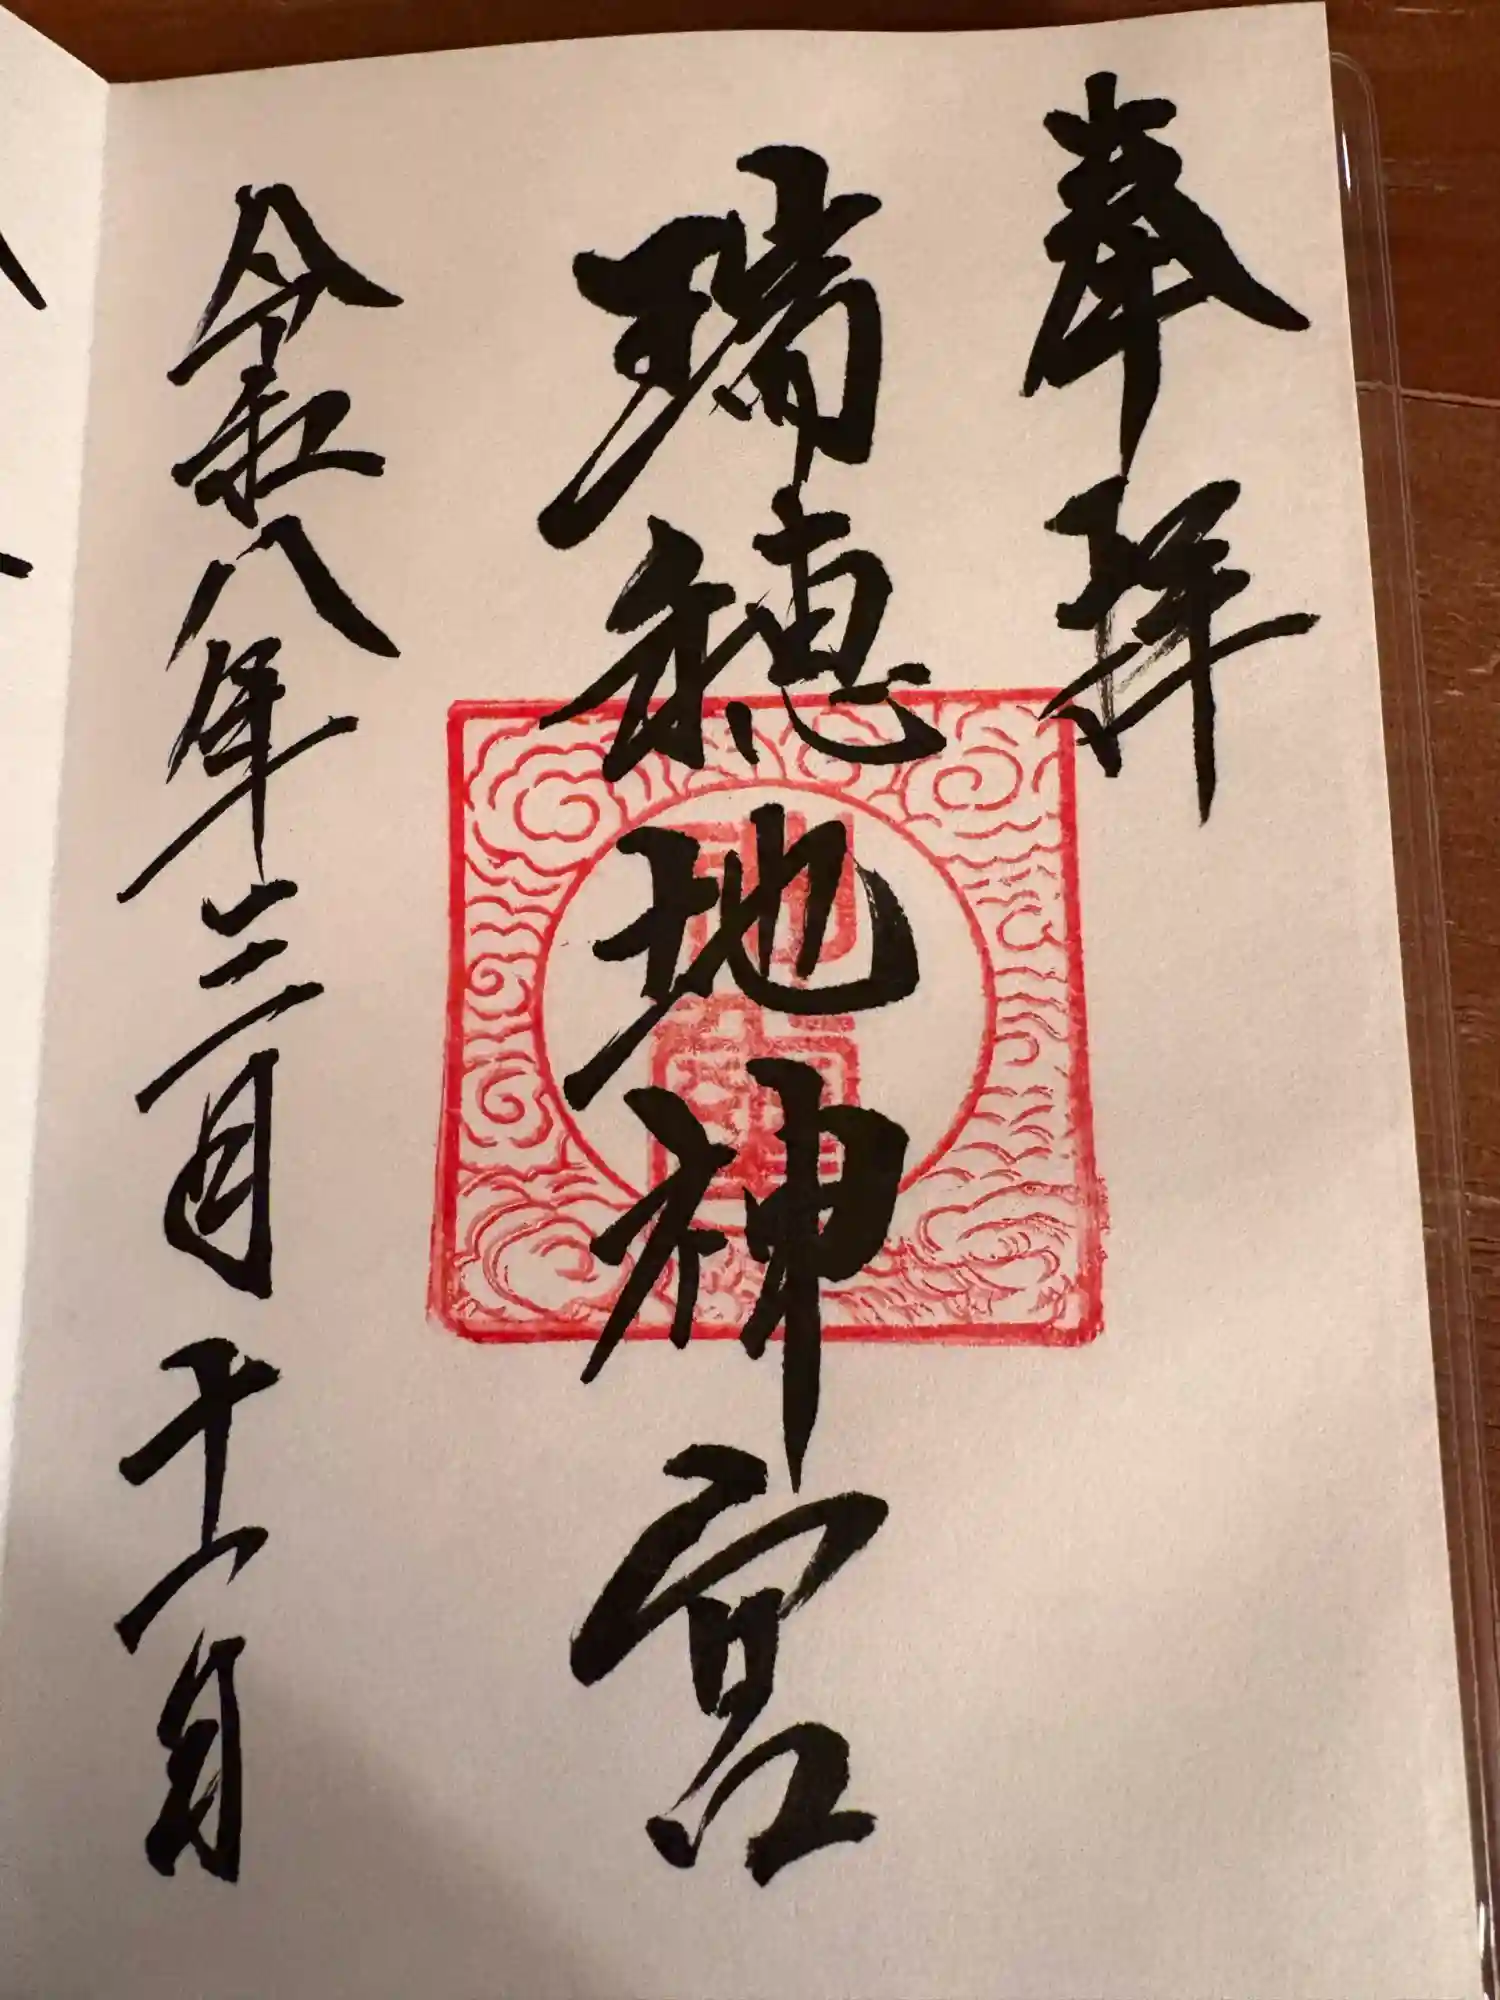 奉拝
瑞穂地神宮
令和八年三月十一日